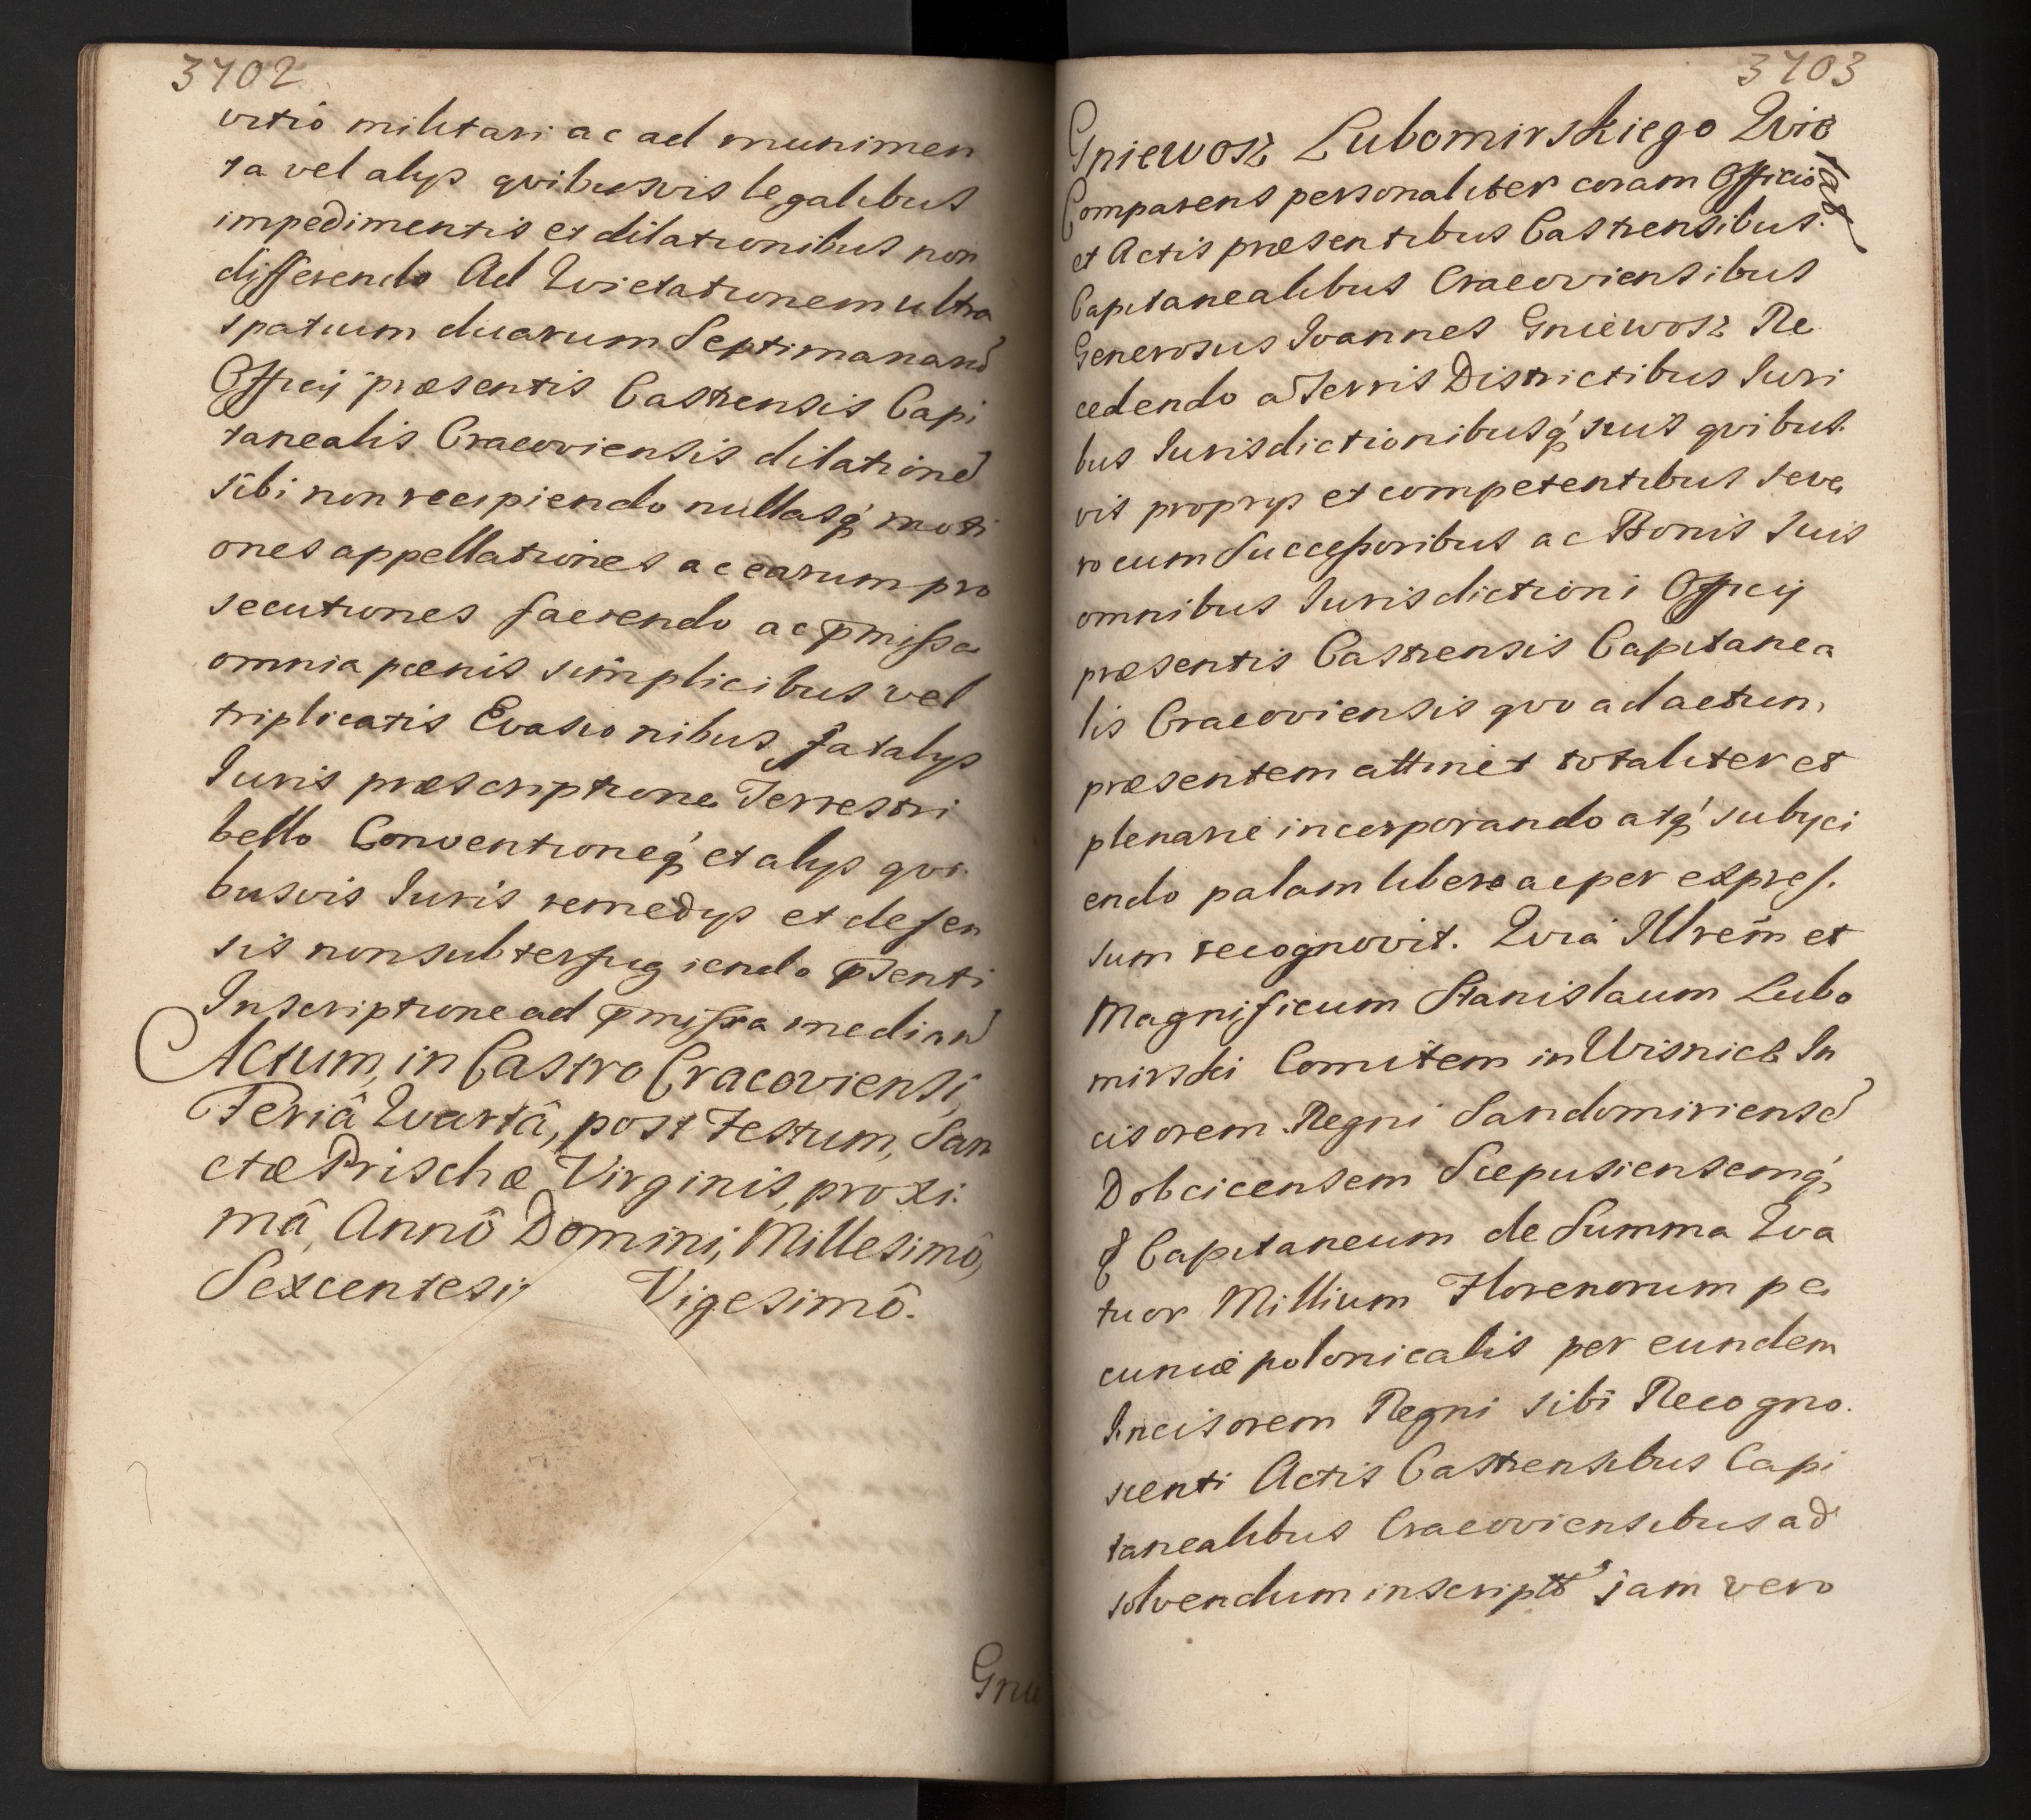 3702
vitio militari ac ad munimen
ta vel alys qvibusvis legalibus
impedimentis et dilationibus non
differendo Ad Qvietationem ultra
spatium duarum Septimanarũ
Officij præsentis Castrensis Capi
tanealis Cracoviensis dilationẽ
sibi non recipiendo nullasq́ moti
ones appellationes ac earum pro
secutiones faciendo ac p̃missa
omnia pœnis simplicibus vel
triplicatis Evasionibus fatalys
Iuris præscriptione Terrestri
bello Conventioneq́ et alys qvi
busvis Iuris remedys et defen
sis non subterfugiendo p̃senti
Inscriptione ad p̃missa median̄
Actum, in Castro Cracoviensi,
Feriâ Qvartâ, post Festum, San
ctæ Prischæ Virginis, proxi:
mâ, Annô Domini, Millesimô,
Sexcentesi Vigesimô.
Gnie
3703
Gniewosz Lubomirskiego Qvie
tat
Comparens personaliter coram Officio
et Actis præsentibus Castrensibus
Capitanealibus Cracoviensibus
Generosus Ioannes Gniewosz Re
cedendo a Terris Districtibus Iuri
bus Iurisdictionibusq́ suis qvibus
vis proprys et competentibus seve
ro cum Successoribus ac Bonis Suis
omnibus Iurisdictioni Officij
præsentis Castrensis Capitanea
lis Cracoviensis qvo ad actum,
præsentem attinet totaliter et
plenarie incorporando atq́ subyci
endo palam libere ac per expres.
sum recognovit. Qvia Illrem̃ et
Magnificum Stanislaum Lubo
mirski Comitem in Wisnicz In
cisorem Regni Sandomiriensẽ
Dobcicensem Scepusiensemq́,
& Capitaneum de Summa Qva
tuor Millium Florenorum pe
cuniæ polonicalis per eundem
Incisorem Regni sibi Recogno.
scenti Actis Castrensibus Capi
tanealibus Cracoviensibus ad
solvendum inscripto jam vero